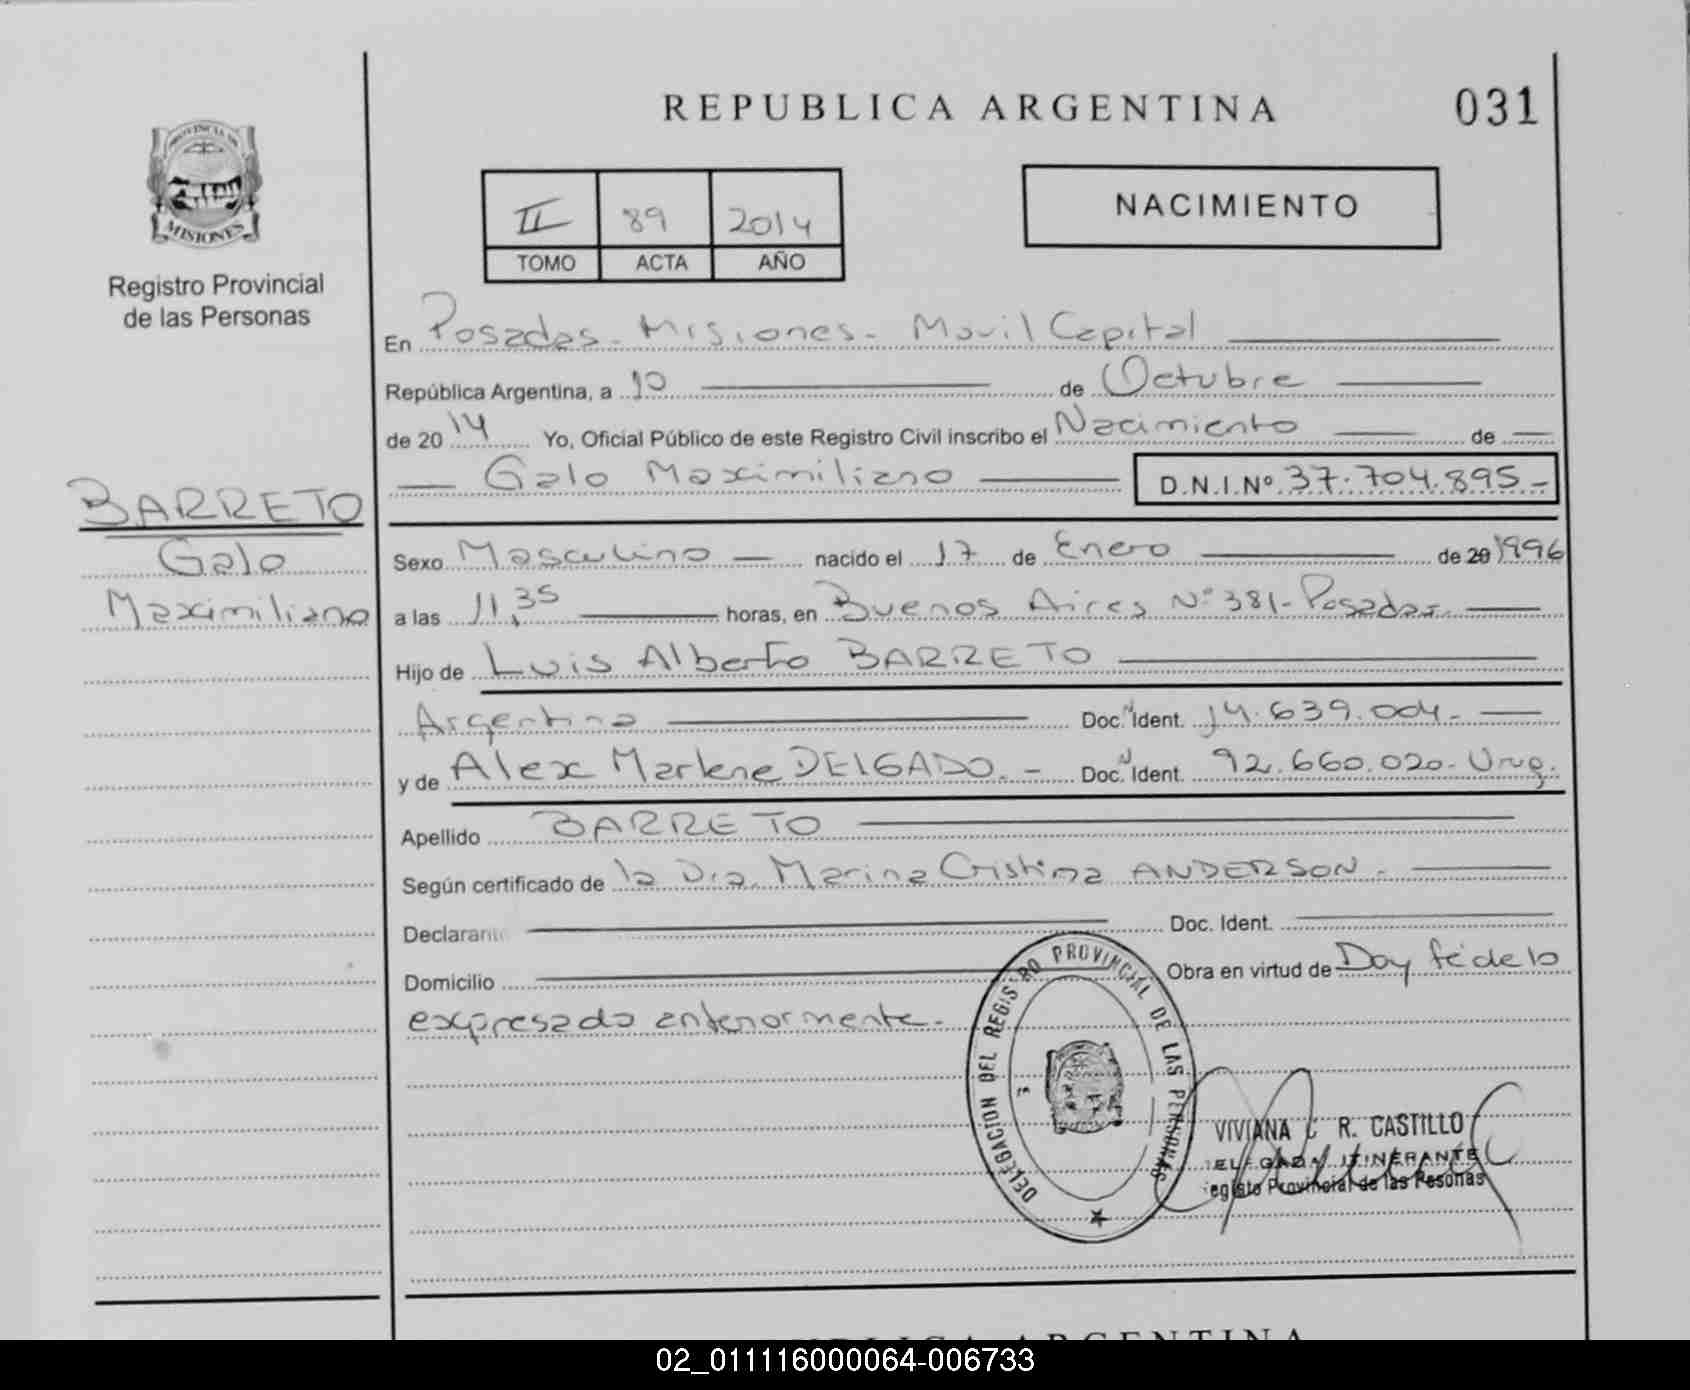 REPUBLICA ARGENTINA
031
PROVINCIA DE
MISIONES
Registro Provincial
de las Personas
II 89 2014
TOMO ACTA AÑO
NACIMIENTO
En Posadas - Misiones - Movil Capital
República Argentina, a 10 de Octubre
de 2014 Yo, Oficial Público de este Registro Civil inscribo el Nacimiento de
Galo Maximiliano D.N.I.Nº 37.704.895-
BARRETO
Galo
Maximiliano
Sexo Masculino nacido el 17 de Enero de 20 1996
a las 11,35 horas, en Buenos Aires Nº 381 - Posadas
Hijo de Luis Alberto BARRETO
Argentina Doc. Ident. 14.639.004.-
y de Alex Marlene DELGADO. - Doc. Ident. 92.660.020- Urug.
Apellido BARRETO
Según certificado de la Dra. Marina Cristina ANDERSON.-
Declarante Doc. Ident.
Domicilio Obra en virtud de Doy fé de lo
expresado anteriormente.-
DELEGACION DEL REGISTRO PROVINCIAL DE LAS PERSONAS
VIVIANA C R. CASTILLO
ELEGADA ITINERANTE
egisto Provincial de las Pesonas
REPUBLICA ARGENTINA
02_011116000064-006733